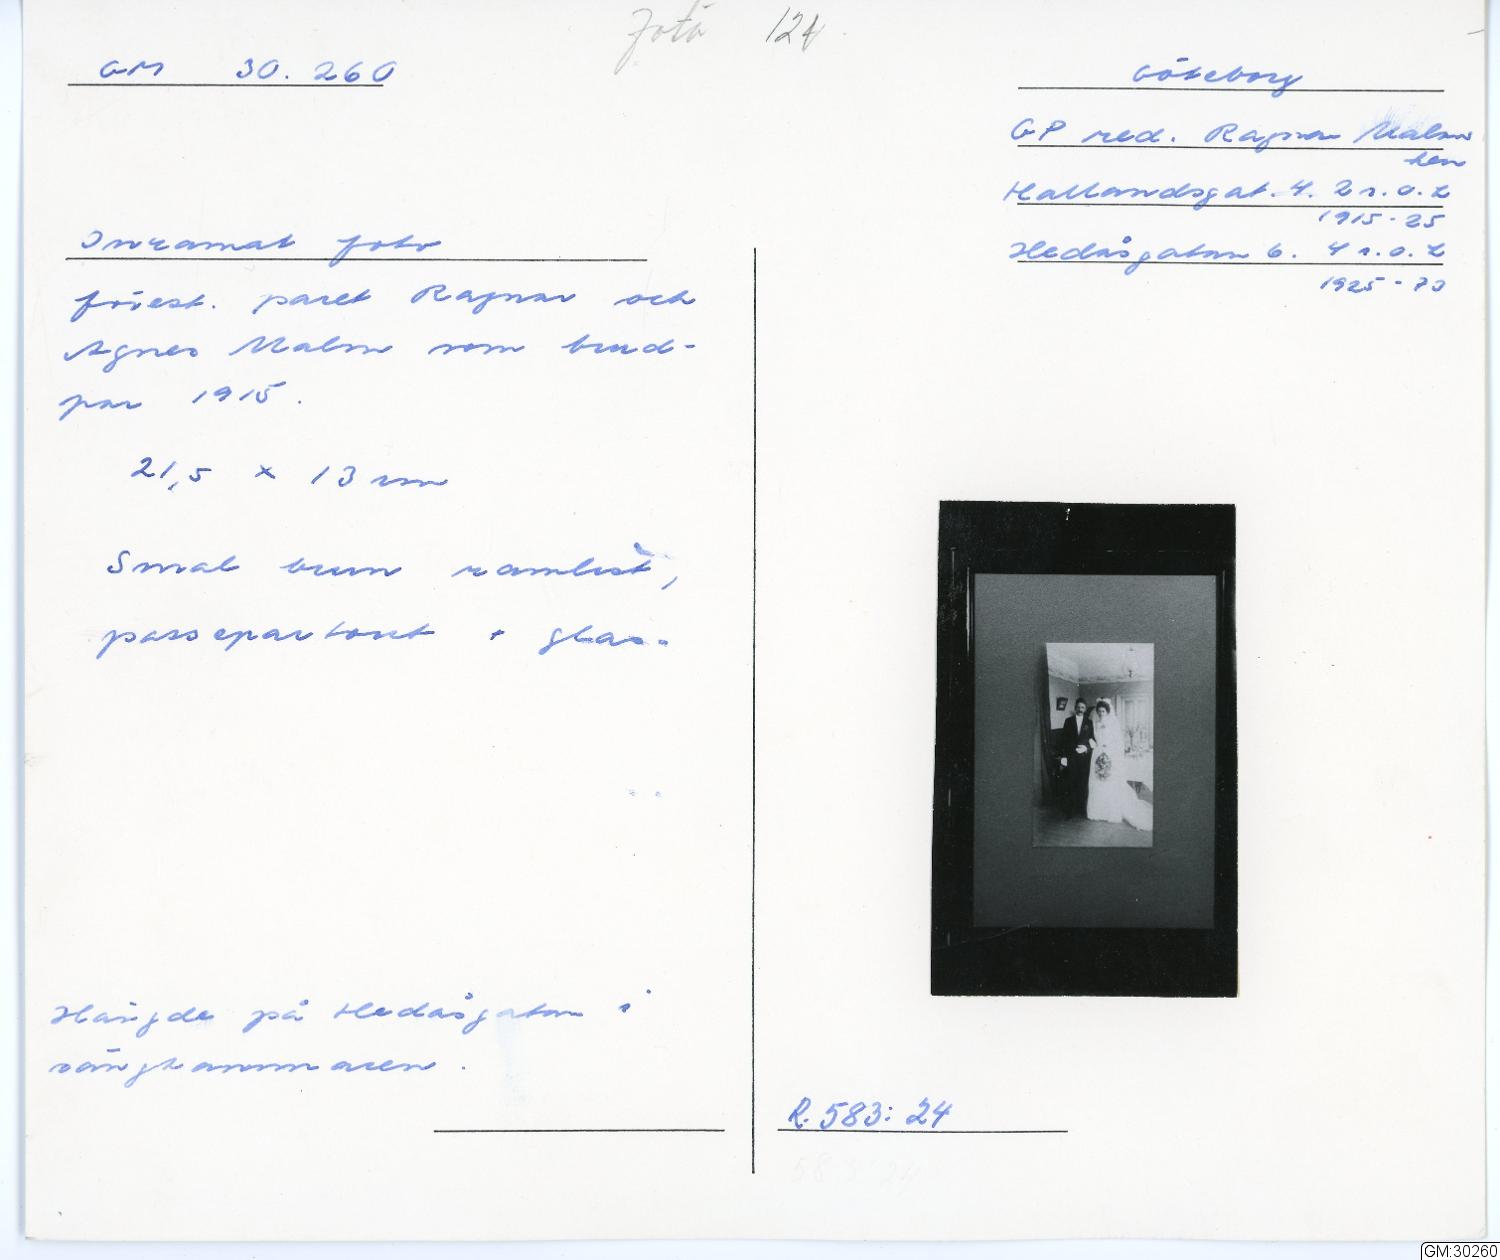 Foto 124
GM 30.260
Göteborg
GP red. Ragnar Malms
hem
Hallandsgat. 4. 2 r.o.k
1915-25
Hedåsgatan 6. 4 r.o.k
1925-70
Inramat foto
förest. paret Ragnar och
Agnes Malm som brud-
par 1915.
21,5 x 13 cm
Smal brun ramlist,
passepartout + glas.
Hängde på Hedåsgatan i
sängkammaren.
R.583:24
583:24
GM:30260